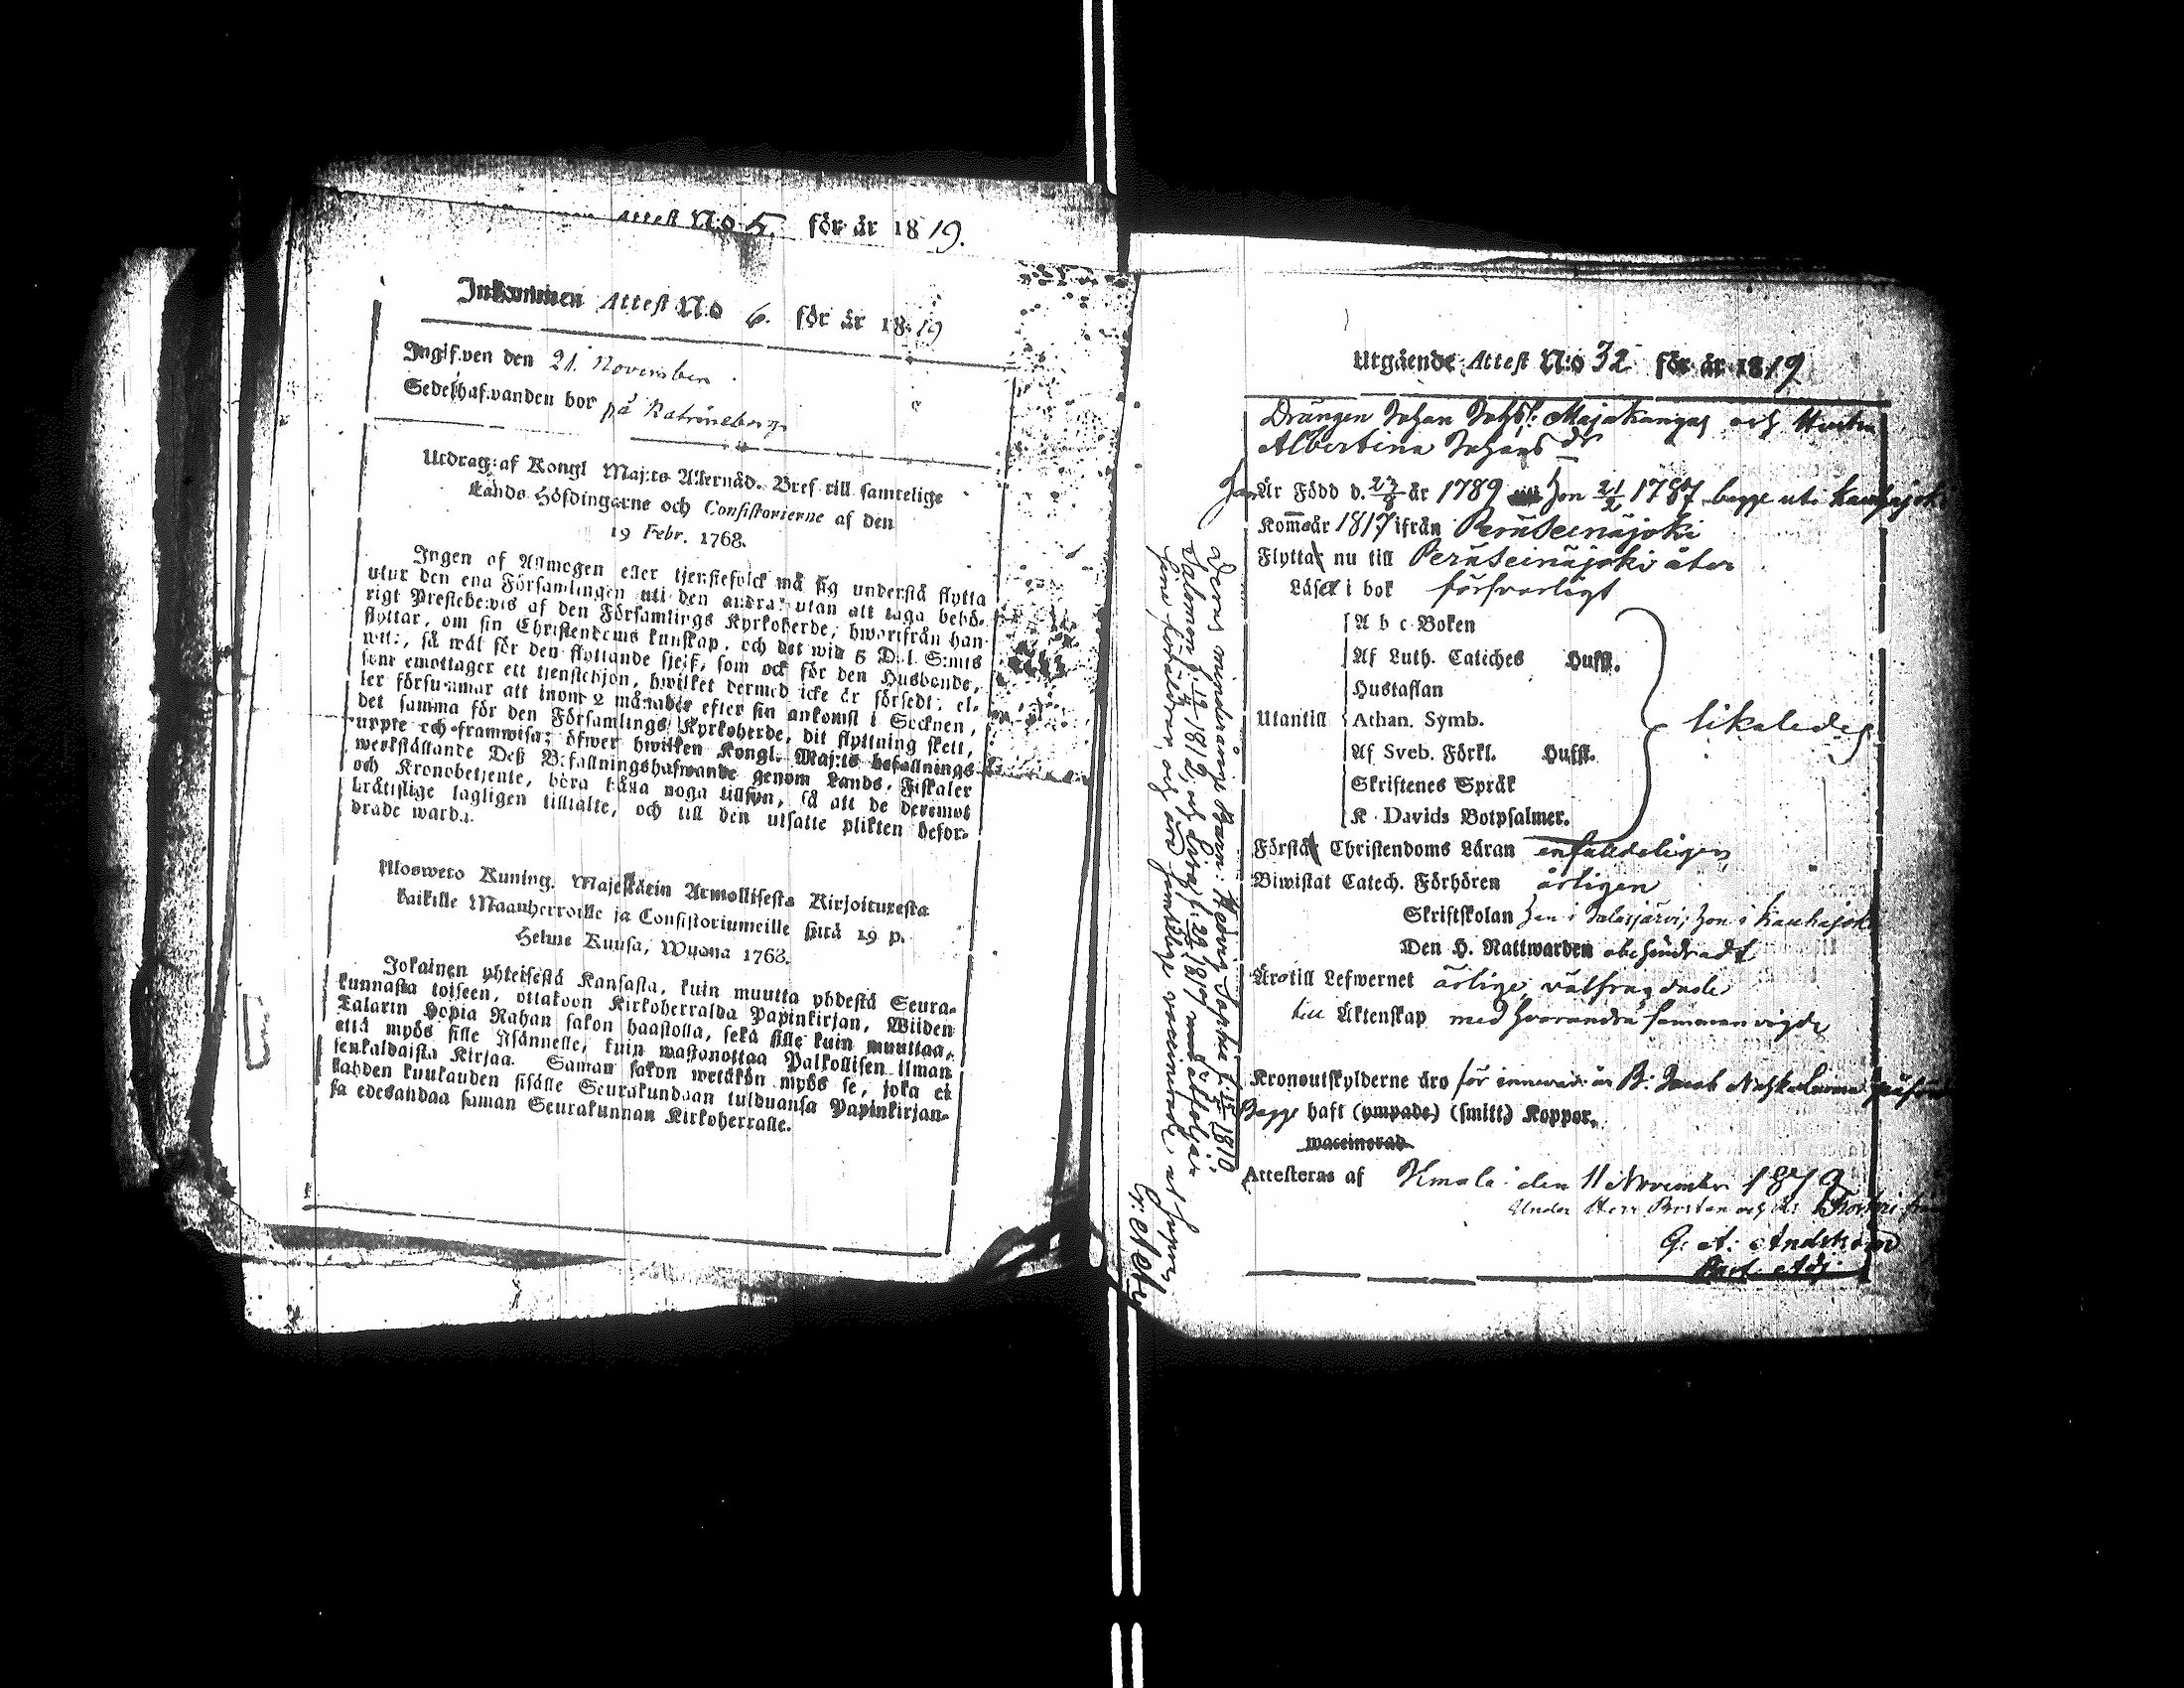 Attest N:o 5. för år 1819.
Inkommen Attest N:o 6. för år 1819
Ingifven den 21. November
Sedelhafvanden bor på Katrineberg
Utdrag af Kongl Maj:ts Allernåd. Bref till samtelige
Lands Höfdingarne och Consistorierne af den
19 Febr. 1768.
Ingen af Allmogen eller tjenstefolck må sig understå flytta
utur den ena Församlingen uti den andra, utan att taga behö-
rigt Prestebevis af den Församlings Kyrkoherde, hwarifrån han
flyttar, om sin Christendoms kunskap, och det wid 5 Dal. S:mts
wite, så wäl för den flyttande sjelf, som ock för den Husbonde,
som emottager ett tjenstehjon, hwilket dermed icke är försedt, el-
ler försummar att inom 2 månader efter sin ankomst i Socknen,
det samma för den Församlings Kyrkoherde, dit flyttning skett,
uppte och framwisa; öfwer hwilken Kongl. Maj:ts befallnings
werkställande Deß Befallningshafwande genom Lands, Fiskaler
och Kronobetjente, böra hålla noga tillsyn, så att de deremot
bråttslige lagligen tilltalte, och till den utsatte plikten befor-
drade warda.
Ulosweto Kuning. Majestätin Armollisesta Kirjoituxesta
kaikille Maanherroille ja Consistoriumeille siitä 19 p.
Helme Kuusa, Wuonna 1768.
Jokainen yhteisestä Kansasta, kuin muutta yhdestä Seura-
kunnasta toiseen, ottakoon Kirkoherralda Papinkirjan, Wiiden
Talarin Hopia Rahan sakon haastolla, sekä sille kuin muuttaa,
että myös sille Isännelle, kuin wastanottaa Palkollisen ilman
senkaldaista Kirjaa. Saman sakon wetäkön myös se, joka ei
kahden kuukauden sisälle Seurakundaan tulduansa Papinkirjan-
sa edesandaa saman Seurakunnan Kirkoherralle.
Utgående Attest N:o 32 för år 1819
Drängen Johan Johs: Majakangas och Hustru
Albertina Johans dr
Han Är Född d. 23/8 år 1789 hon 21/2 1787 begge uti Kauhajoki
Kom år 1817 ifrån Peräseinäjoki
Flyttar nu till Peräseinäjoki åter
Läser i bok försvarligt
A b c Boken
Af Luth. Catiches Hufst.
Hustaflan
Utantill Athan. Symb. likaledes
Af Sveb. Förkl. Hufst.
Skriftenes Språk
K. Davids Botpsalmer.
Förstår Christendoms Läran enfaldeligen
Biwistat Catech. Förhören årligen
Skriftskolan han i Jalasjärvi, hon i Kauhajoki
Den H. Nattwarden obehindradt
Äro till Lefwernet ärlige, välfrägdade
till Äktenskap med hvarandra sammanvigde
Kronoutskylderne äro för innevar: år B: Jacob
Begge haft (ympade) (smitt) Koppor.
waccinerad
Attesteras af Ilmola den 11 November 1819
Under Herr Prosten och
G: A: Andström
Past. Adj:
Deras minderårige Barn: Hedvig Sophia f. 1810
Salomon f. 1812, och f. 29 1817 medfölja
sine föräldrar, och äro samtelige vaccinerade